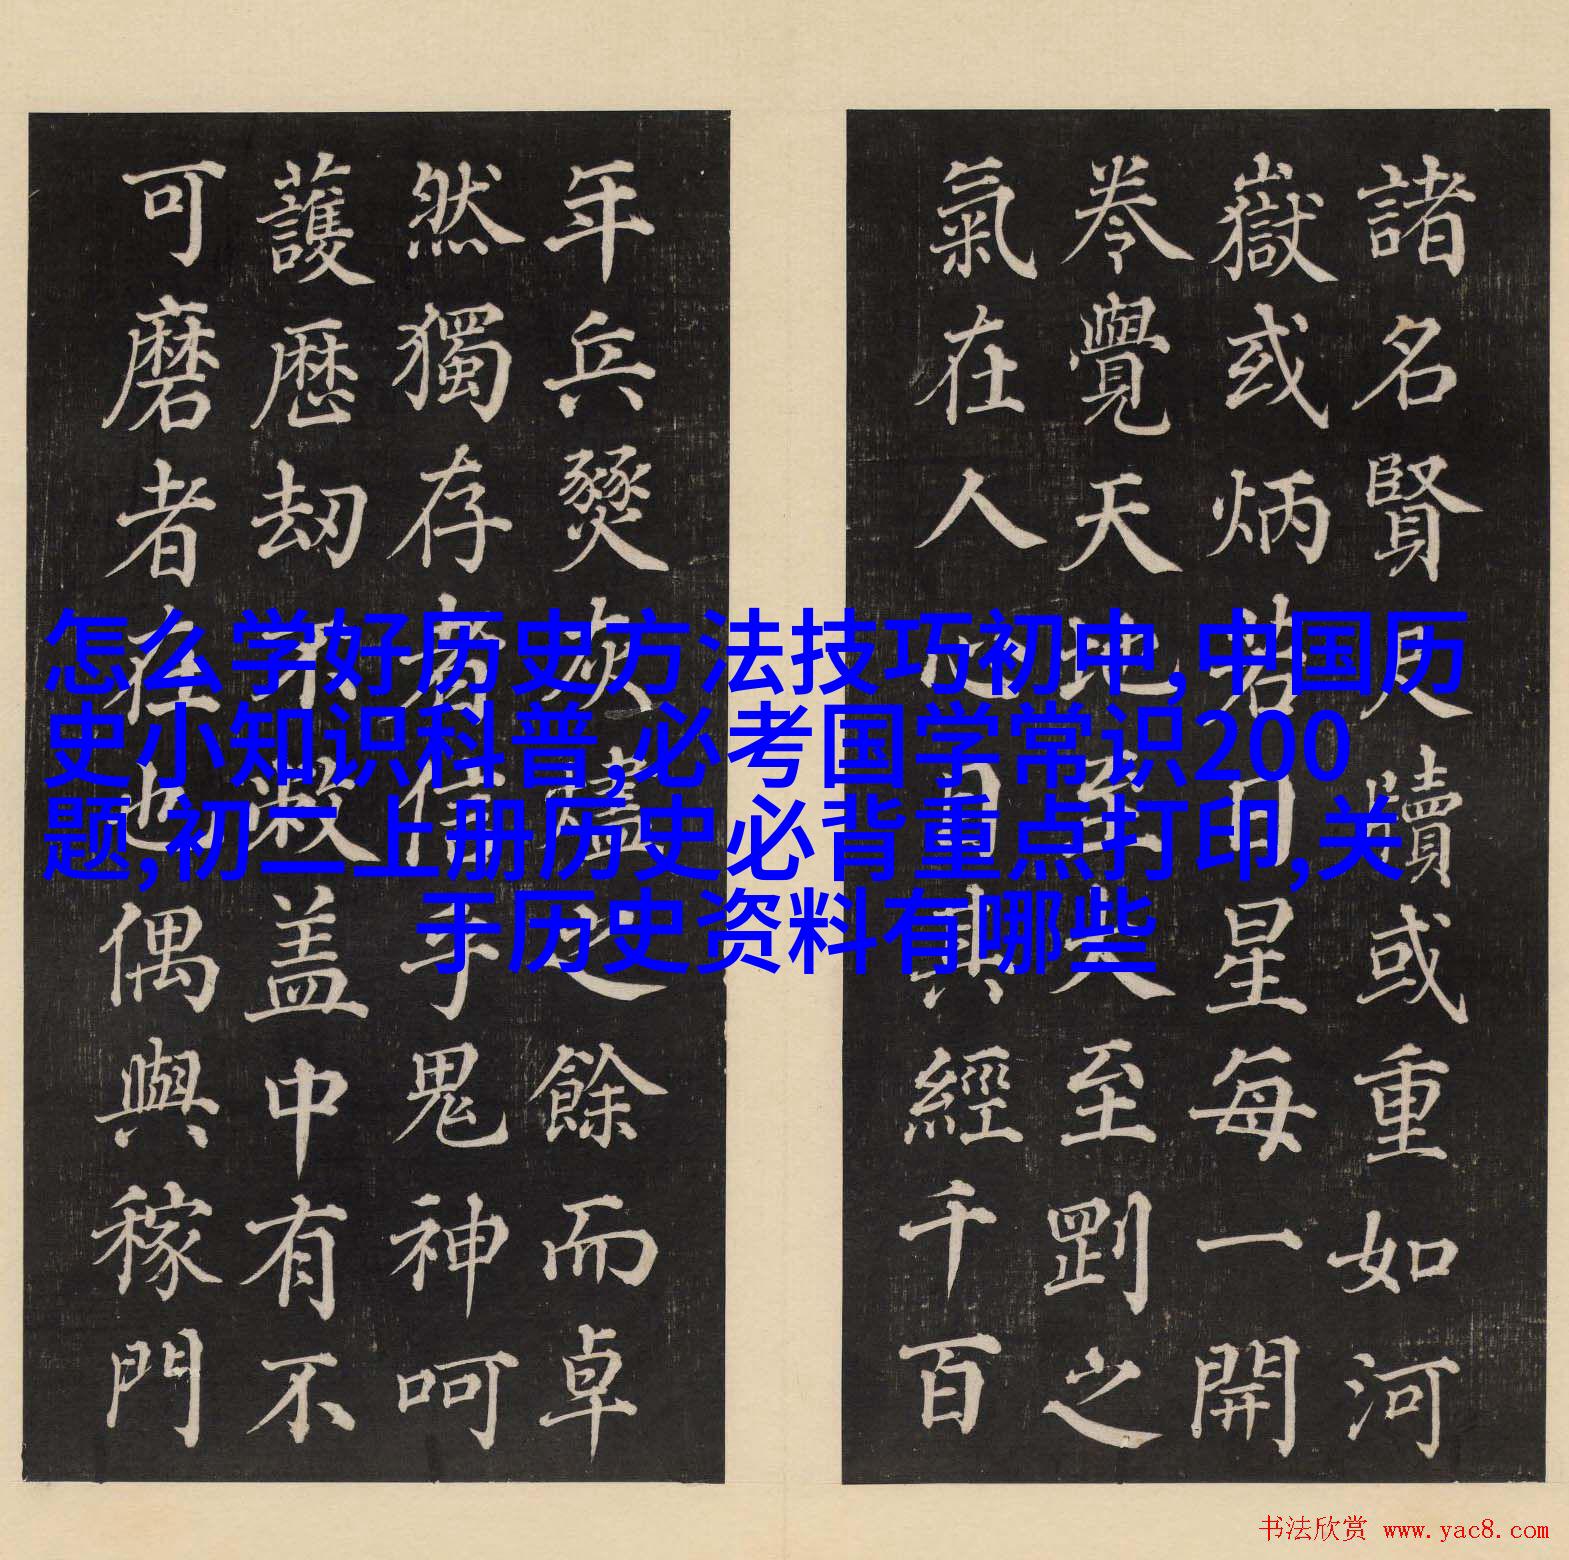 諸名賢尺牘或重如河
嶽或炳若日星每一開
巻覺天地至大至剛之
氣在人心目其經千百
年兵燹灰燼之餘而卓
然獨存者信乎鬼神呵
護歴刼不盖中有不
可磨者在也偶與稼門
怎么学好历史方法技巧初中,中国历
史小知识科普,必考国学常识200
题,初二上册历史必背重点打印,关
于历史资料有哪些
书法欣赏 www.yac8.com